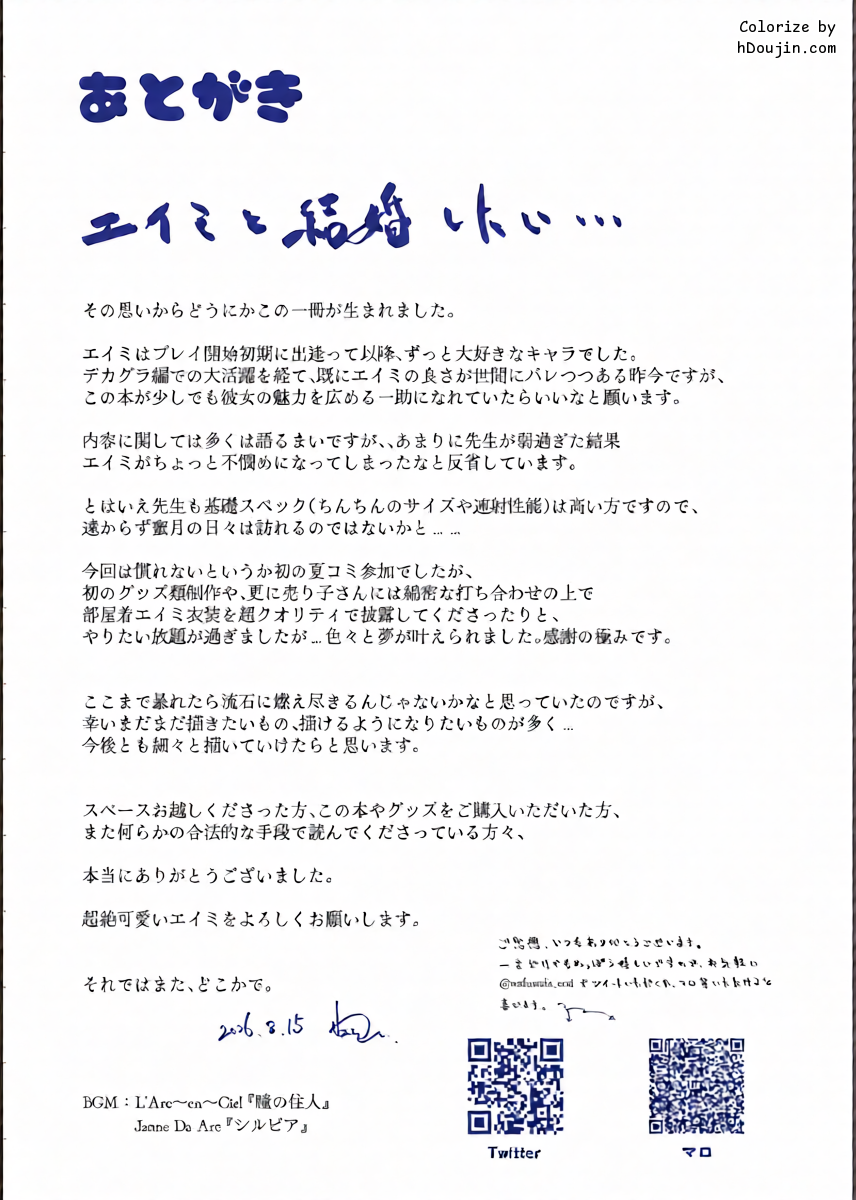 Colorize by
hDoujin.com
あとがき
エイミと結婚したい…
その思いからどうにかこの一冊が生まれました。
エイミはプレイ開始初期に出逢って以降、ずっと大好きなキャラでした。
デカグラ編での大活躍を経て、既にエイミの良さが世間にバレつつある昨今ですが、
この本が少しでも彼女の魅力を広める一助になれていたらいいなと願います。
内容に関しては多くは語るまいですが、、あまりに先生が弱過ぎた結果
エイミがちょっと不憫めになってしまったなと反省しています。
とはいえ先生も基礎スペック(ちんちんのサイズや連射性能)は高い方ですので、
遠からず蜜月の日々は訪れるのではないかと……
今回は慣れないというか初の夏コミ参加でしたが、
初のグッズ類制作や、更に売り子さんには綿密な打ち合わせの上で
部屋着エイミ衣装を超クオリティで披露してくださったりと、
やりたい放題が過ぎましたが…色々と夢が叶えられました。感謝の極みです。
ここまで暴れたら流石に燃え尽きるんじゃないかなと思っていたのですが、
幸いまだまだ描きたいもの、描けるようになりたいものが多く…
今後とも細々と描いていけたらと思います。
スペースお越しくださった方、この本やグッズをご購入いただいた方、
また何らかの合法的な手段で読んでくださっている方々、
本当にありがとうございました。
超絶可愛いエイミをよろしくお願いします。
それではまた、どこかで。
ご感想、いつもありがとうございます。
一言だけでもめっぽう嬉しいですので、お気軽に
喜びます。
8.15
BGM：L'Arc～en～Ciel『瞳の住人』
Janne Da Arc『シルビア』
Twitter
マロ